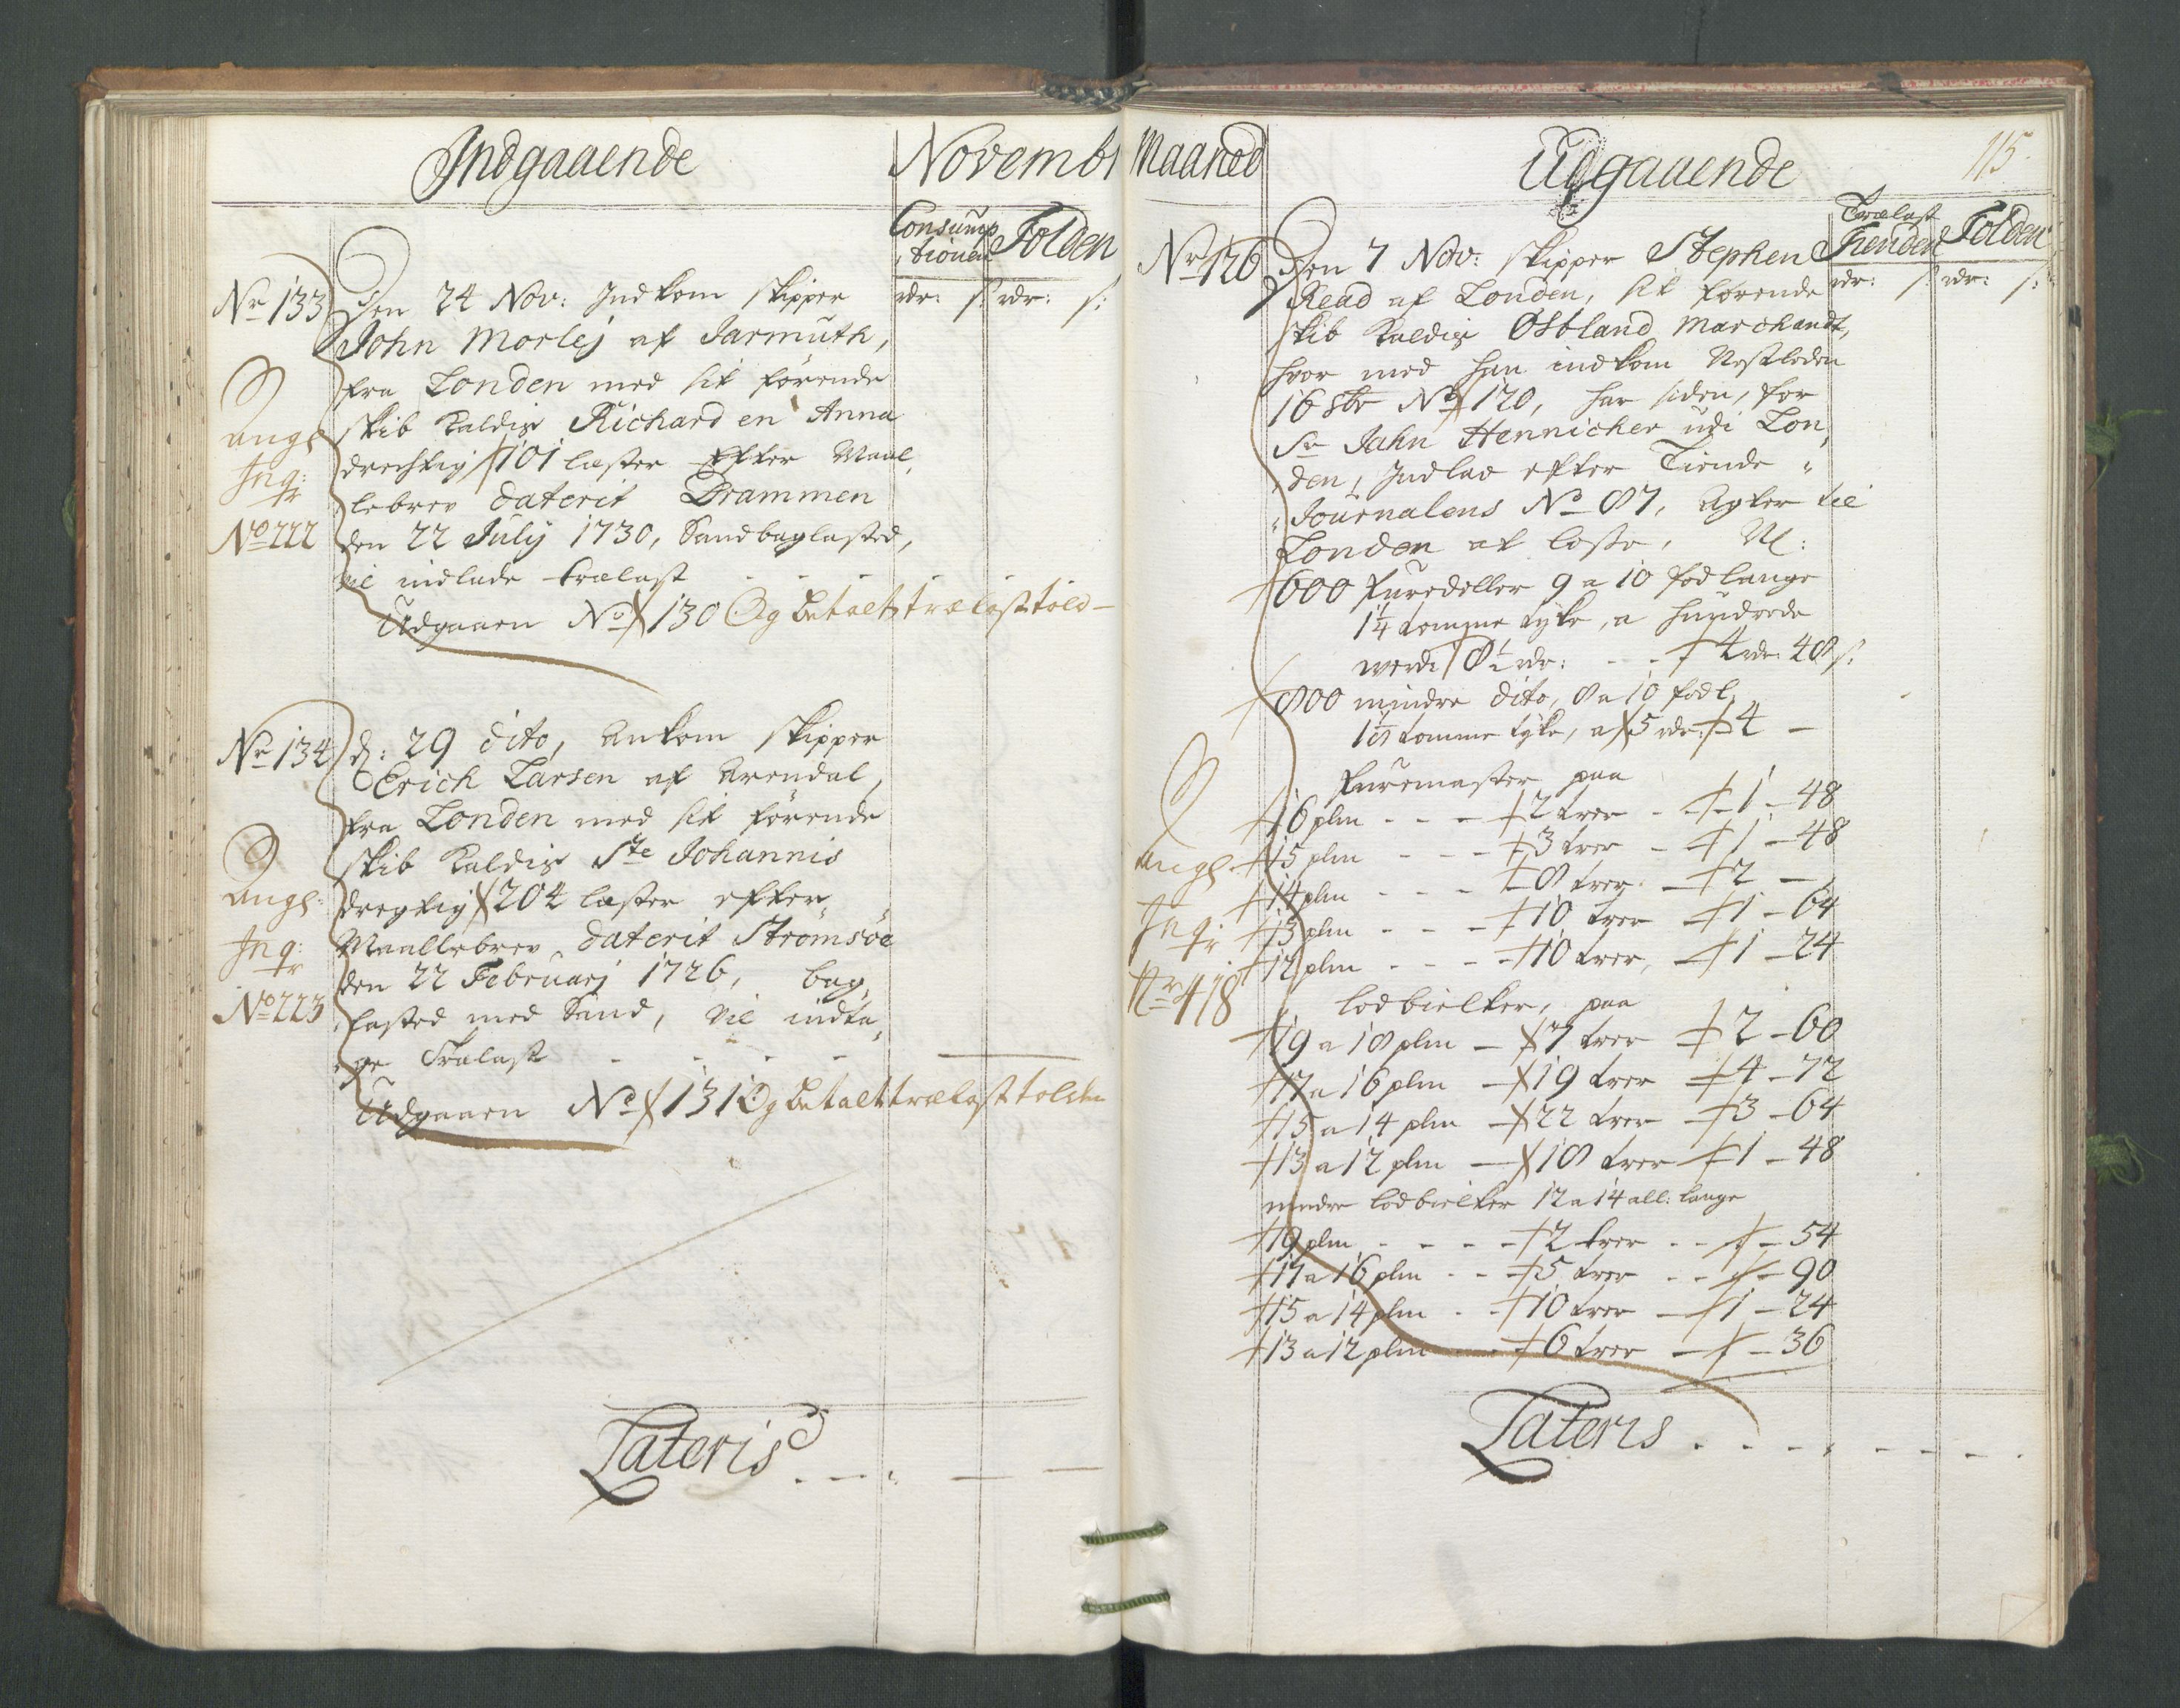 Indgaaende
Novembr
Consump
tionen
Tolden
rdr: s: rdr: s:
No 133
Den 24 Nov: Indkom skipper
John Morlej af Jarmuth,
fra Londen med sit førende
skib kaldis Richard en Anna
drechtig 101 læster efter Maal,
lebrev daterit Drammen
den 22 July 1730, Sandbaglasted,
vil indlade trælast
Udgaaen No 130 Og betalt trælast told
Angl
Inq:
No 222
No 134
d: 29 dito, Ankom skipper
Erich Larsen af Arendal,
fra Londen med sit førende
skib kaldis Ste Johannis
dregtig 204 læster efter
Maallebrev daterit Strømsøe
den 22 Februarj 1726, bag,
lasted med Sand, vil indta,
ge Trælast
Udgaaen No 131 Og betalt trælast tolden
Angl:
Inq:
No 223
Lateris
Maaned
Udgaaende
115.
Trælast
Tienden
Tolden
rdr: s: rdr: s:
No 126
Den 7 Nov: skipper Stephen
Read af Londen, sit førende
skib kaldis Ostland Marchandt,
hvor med han indkom Nestleden
16 8br No 120, har siden, for
Sr Jahn Hennicher udi Lon,
den, Indlad efter Tiende
Journalens No 87, Agter til
Londen at losse, Nl:
600 furedeller 9 a 10 fod lange
1¼ tomme tyke, a hundrede
werdi 8½ rdr: - - 4 rdr 48 s:
800 mindre dito, 8 a 10 fod l:
1⅛ tomme tyke, a 5 rdr: 4 -
Furemaster paa
16 plm - - - 2 trær - 1 - 48
15 plm - - - 3 trær - 1 - 48
14 plm - - - 8 trær - 2 -
13 plm - - - 10 trær - 1 - 64
12 plm - - - 10 trær, - 1 - 24
lodbielker, paa
19 a 18 plm - 7 trær 2 - 60
17 a 16 plm - 19 trær 4 - 72
15 a 14 plm - 22 trær - 3 - 64
13 a 12 plm - 18 trær - 1 - 48
mindre lodbielker 12 a 14 all: lange
19 plm - - - - 2 trær - - - 54
17 a 16 plm - - 5 trær - - - 90
15 a 14 plm - - 10 trær - 1 - 24
13 a 12 plm - - 6 trær - - 36
Angl
Inq:
Nr 418
Lateris